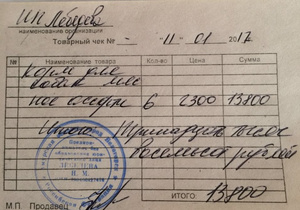 ИП Лебедева
наименование организации
Товарный чек № - 11 - 01 2017
№ Наименование товара Кол-во Цена Сумма
Корм для
собак
6 2300 13800
Итого Тринадцать тысяч
восемьсот рублей
ИТОГО: 13800
М.П. Продавец